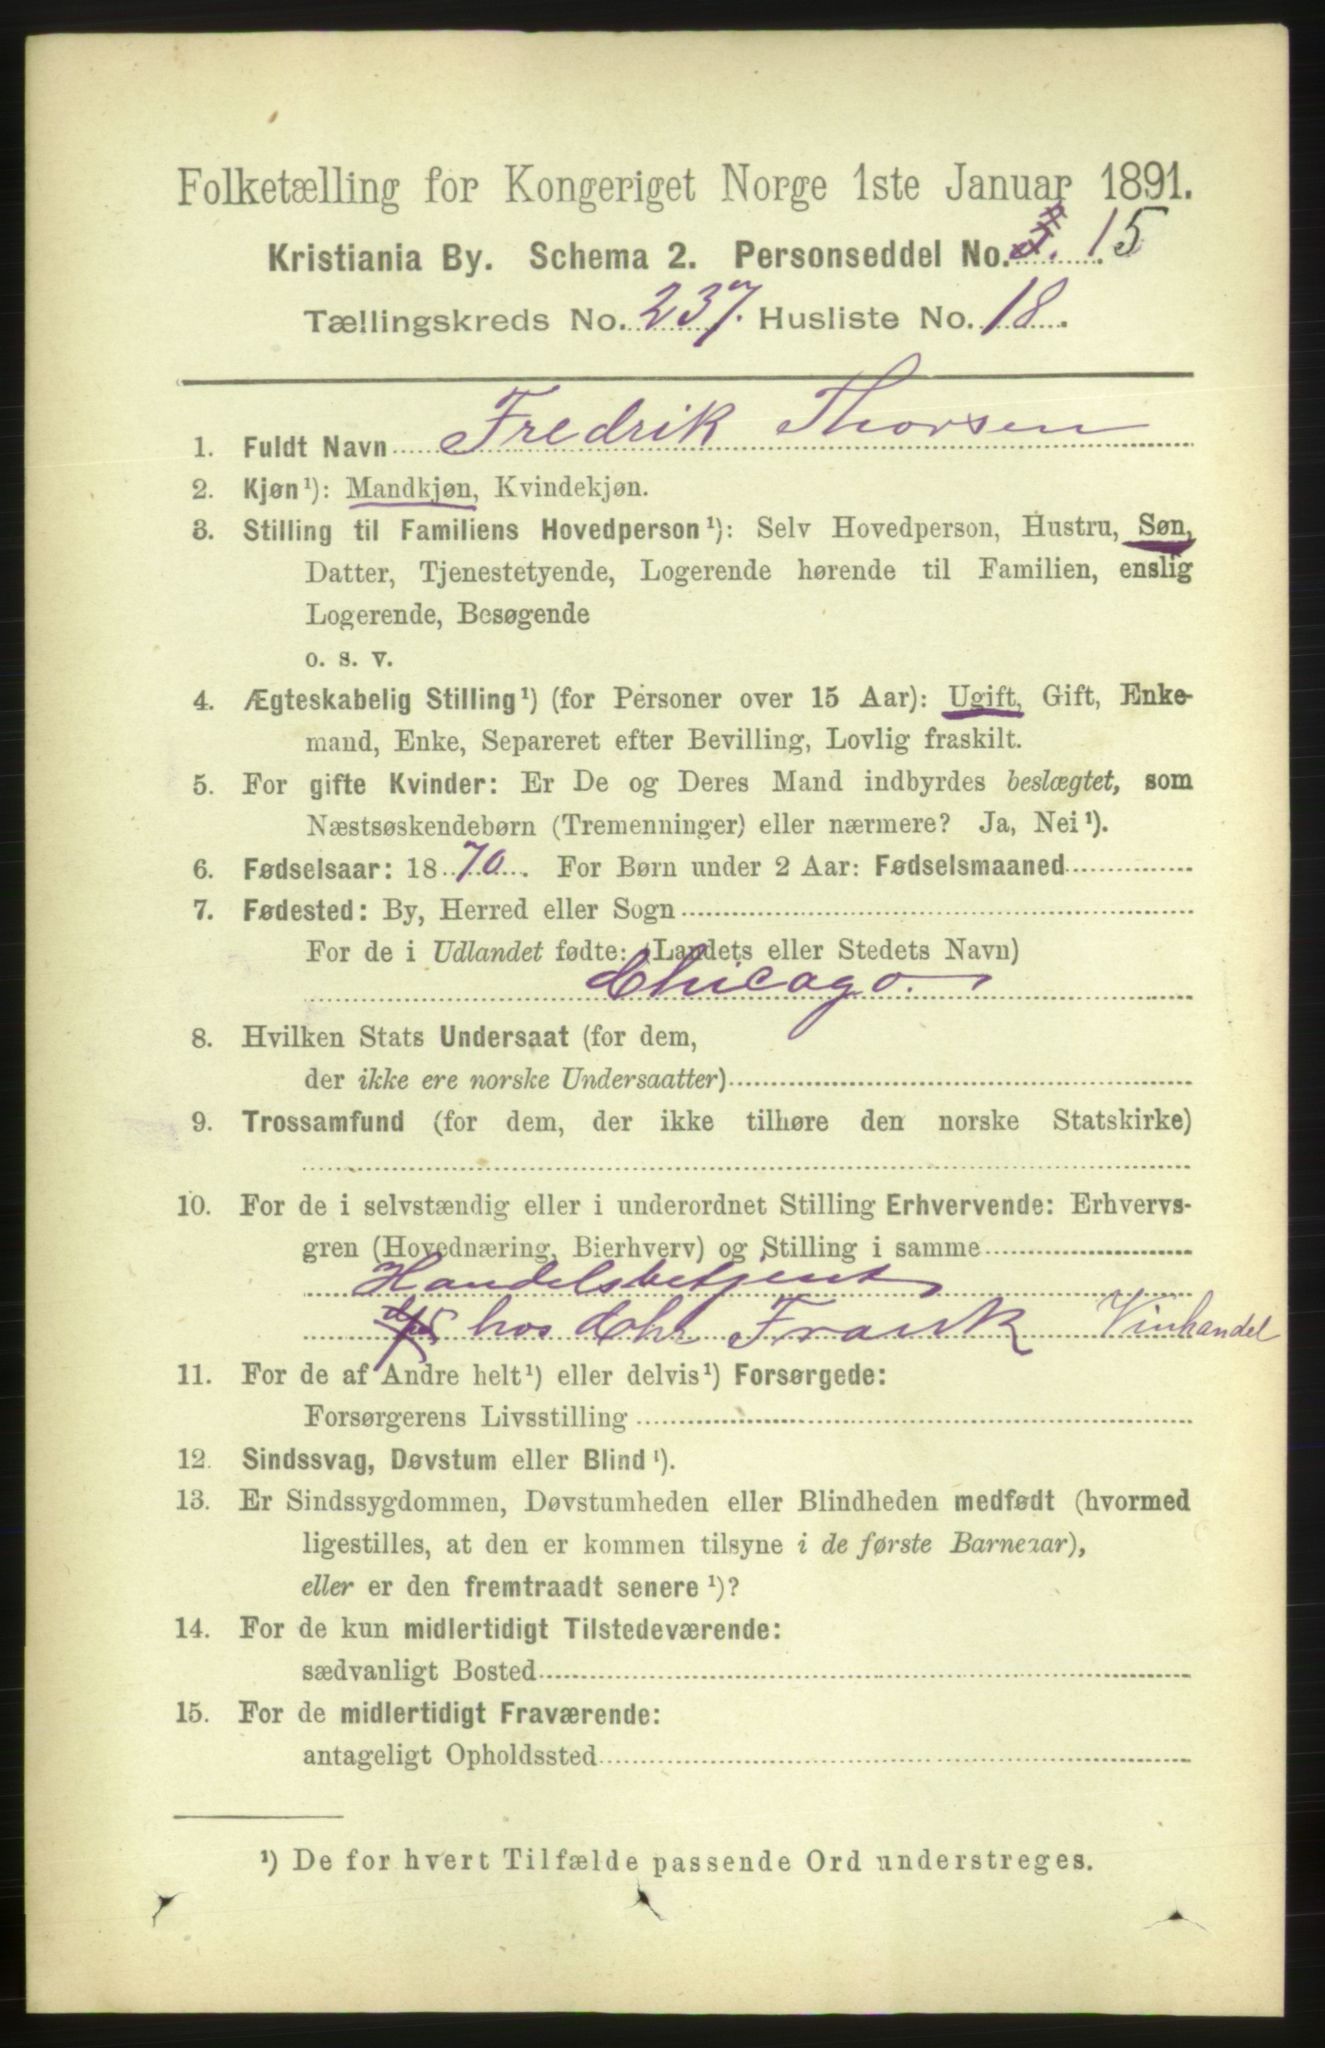 Folketælling for Kongeriget Norge 1ste Januar 1891.
Kristiania By. Schema 2. Personseddel No. 15
Tællingskreds No. 237. Husliste No. 18.
1. Fuldt Navn Fredrik Thorsen
2. Kjøn¹): Mandkjøn, Kvindekjøn.
3. Stilling til Familiens Hovedperson¹): Selv Hovedperson, Hustru, Søn,
Datter, Tjenestetyende, Logerende hørende til Familien, enslig
Logerende, Besøgende
o. s. v.
4. Ægteskabelig Stilling¹) (for Personer over 15 Aar): Ugift, Gift, Enke-
mand, Enke, Separeret efter Bevilling, Lovlig fraskilt.
5. For gifte Kvinder: Er De og Deres Mand indbyrdes beslægtet, som
Næstsøskendebørn (Tremenninger) eller nærmere? Ja, Nei¹).
6. Fødselsaar: 1870. For Børn under 2 Aar: Fødselsmaaned
7. Fødested: By, Herred eller Sogn
For de i Udlandet fødte: (Landets eller Stedets Navn)
Chicago.
8. Hvilken Stats Undersaat (for dem,
der ikke ere norske Undersaatter)
9. Trossamfund (for dem, der ikke tilhøre den norske Statskirke)
10. For de i selvstændig eller i underordnet Stilling Erhvervende: Erhvervs-
gren (Hovednæring, Bierhverv) og Stilling i samme
Handelsbetjent
hos Chr Frank Vinhandel
11. For de af Andre helt¹) eller delvis¹) Forsørgede:
Forsørgerens Livsstilling
12. Sindssvag, Døvstum eller Blind¹).
13. Er Sindssygdommen, Døvstumheden eller Blindheden medfødt (hvormed
ligestilles, at den er kommen tilsyne i de første Barneaar),
eller er den fremtraadt senere¹)?
14. For de kun midlertidigt Tilstedeværende:
sædvanligt Bosted
15. For de midlertidigt Fraværende:
antageligt Opholdssted
¹) De for hvert Tilfælde passende Ord understreges.